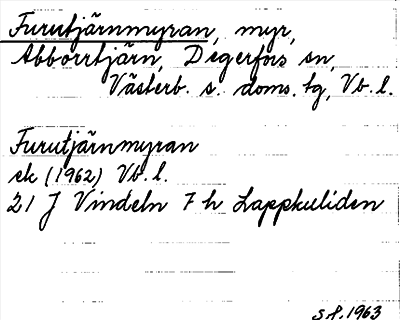 Furutjärnmyran, myr,
Abborrtjärn, Degerfors sn,
Västerb. s. doms. tg, Vb. l.
Furutjärnmyran
ek (1962) Vb. l.
21 J Vindeln 7 h Lappkuliden
1963